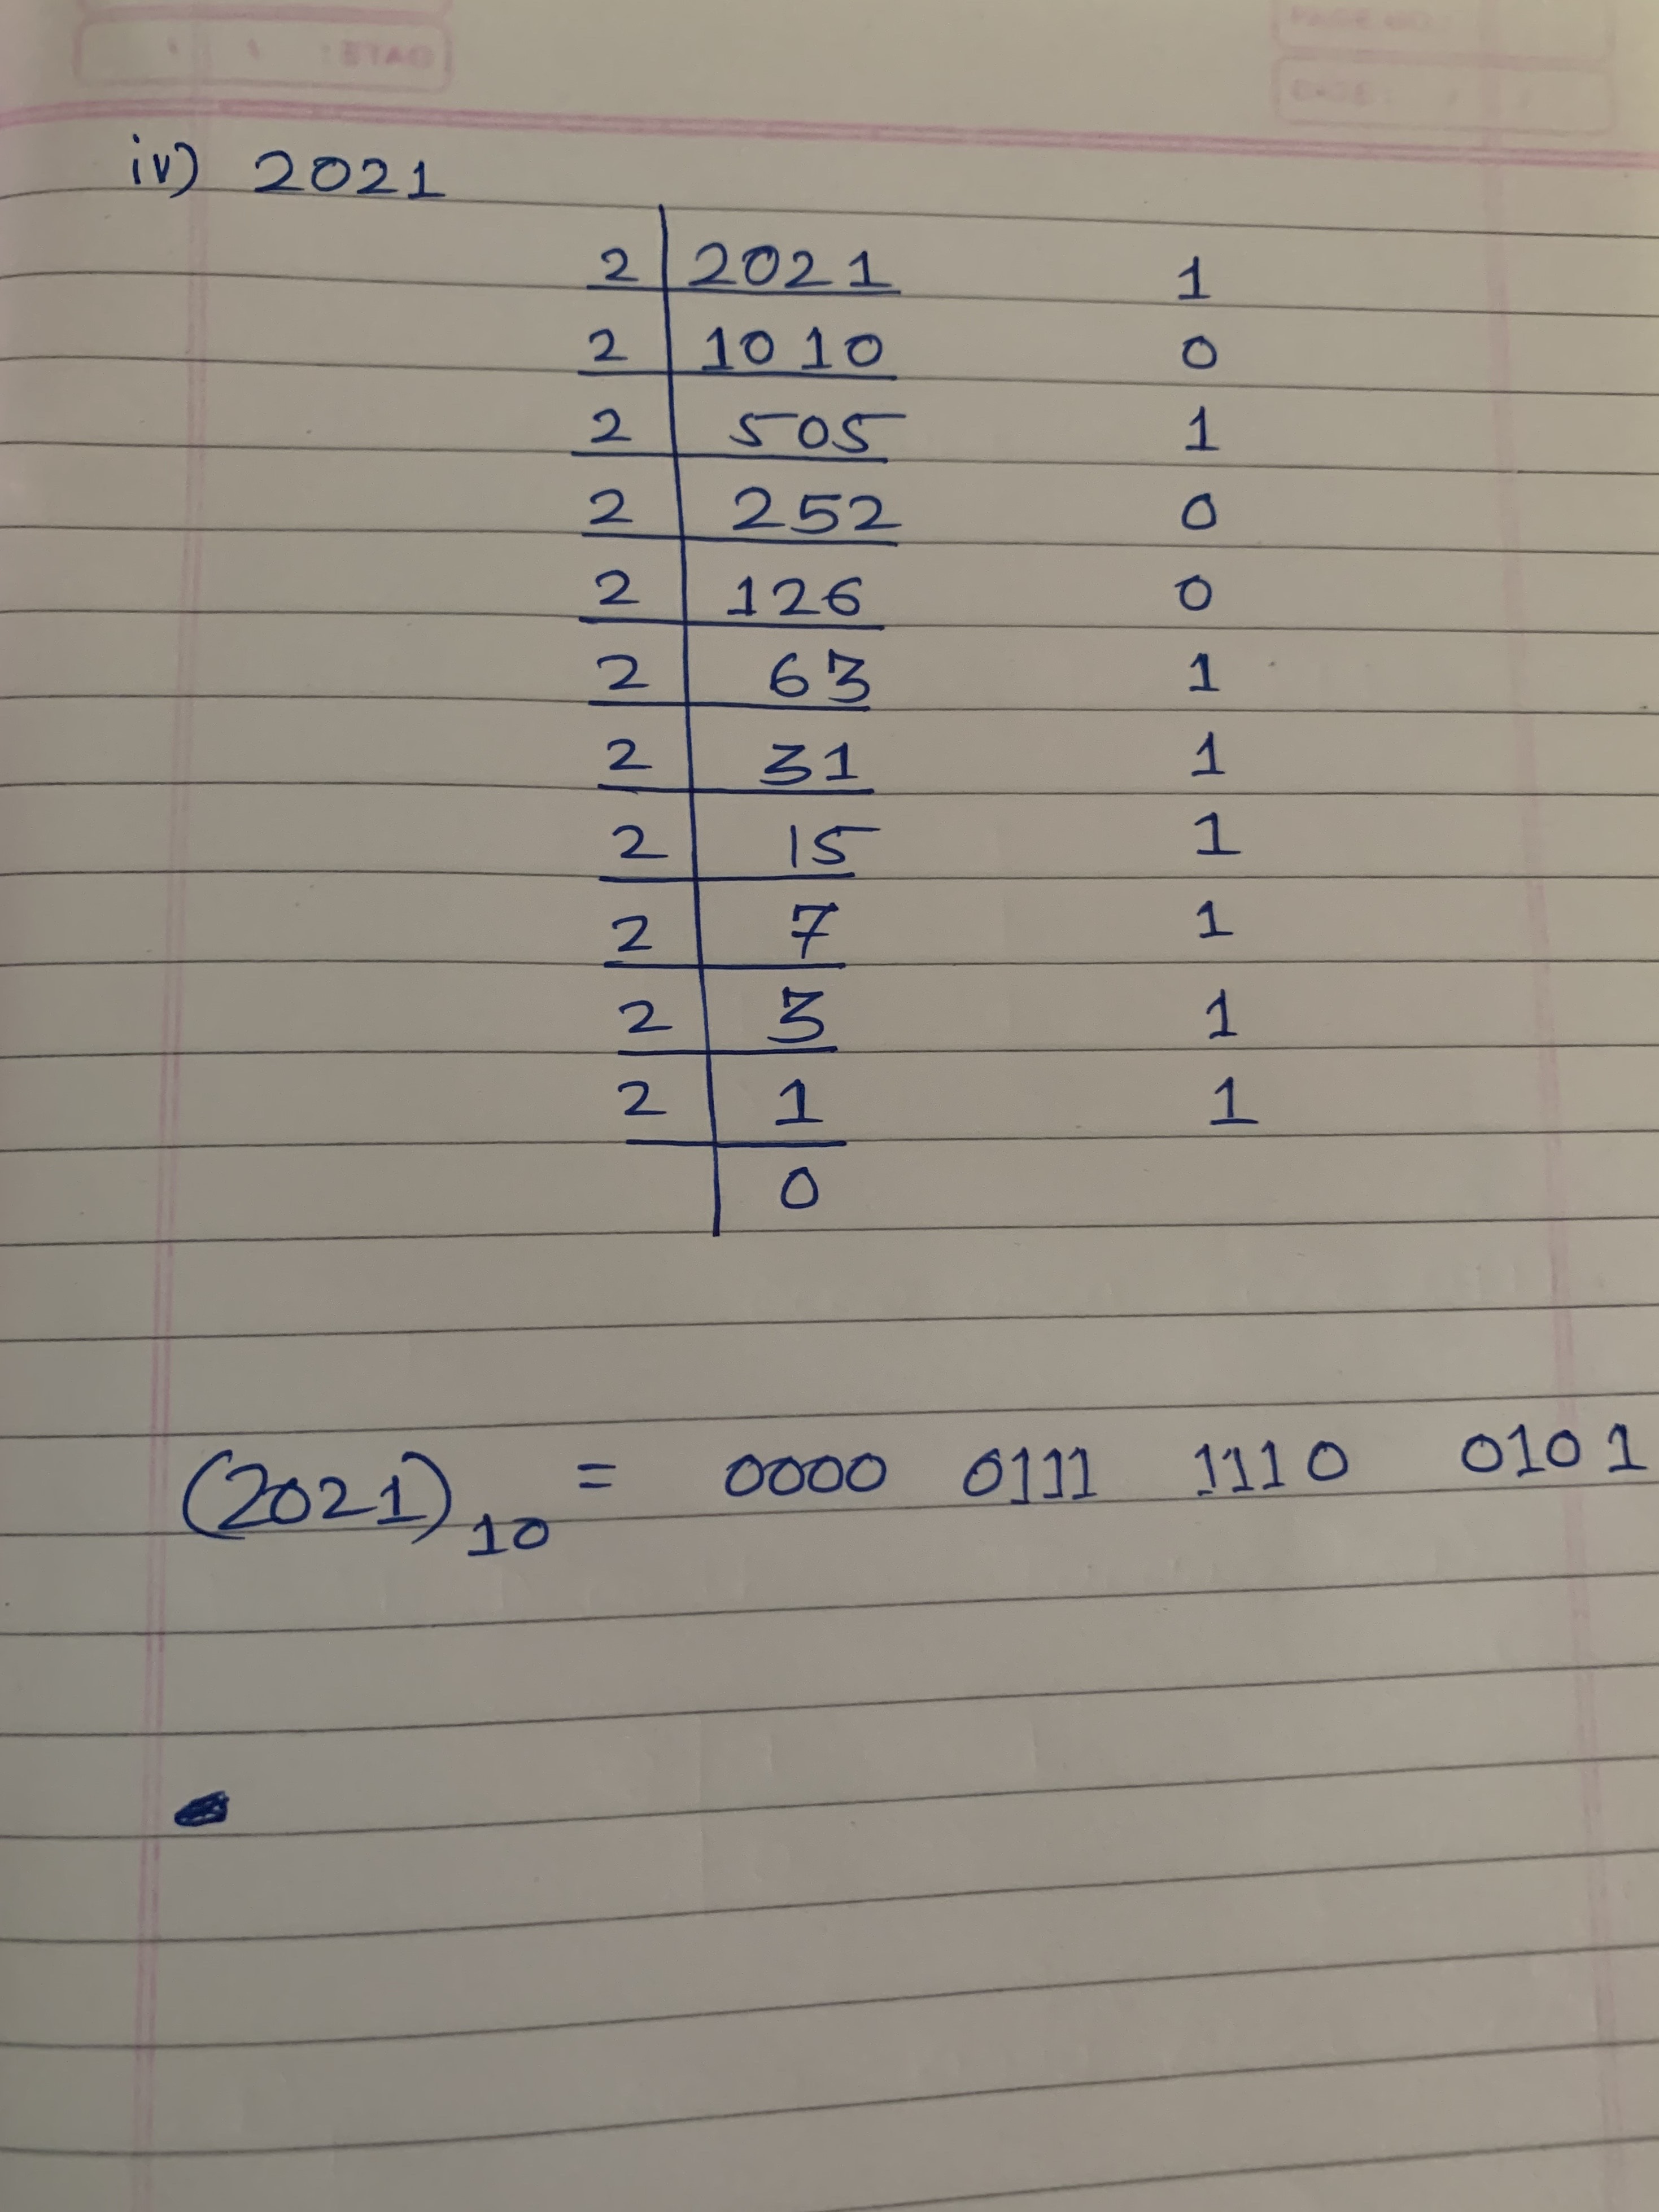 PAGE NO.:
DATE: / /
iv) 2021
2 2021 1
2 1010 0
2 505 1
2 252 0
2 126 0
2 63 1
2 31 1
2 15 1
2 7 1
2 3 1
2 1 1
0
(2021)10 = 0000 0111 1110 0101